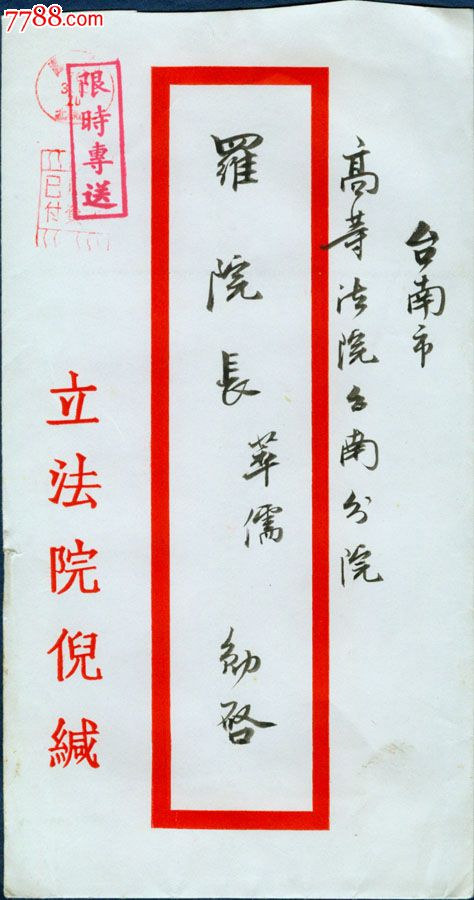 7788.com
台南市
高等法院台南分院
羅院長萃儒 勛啓
限時專送
已付
立法院倪緘